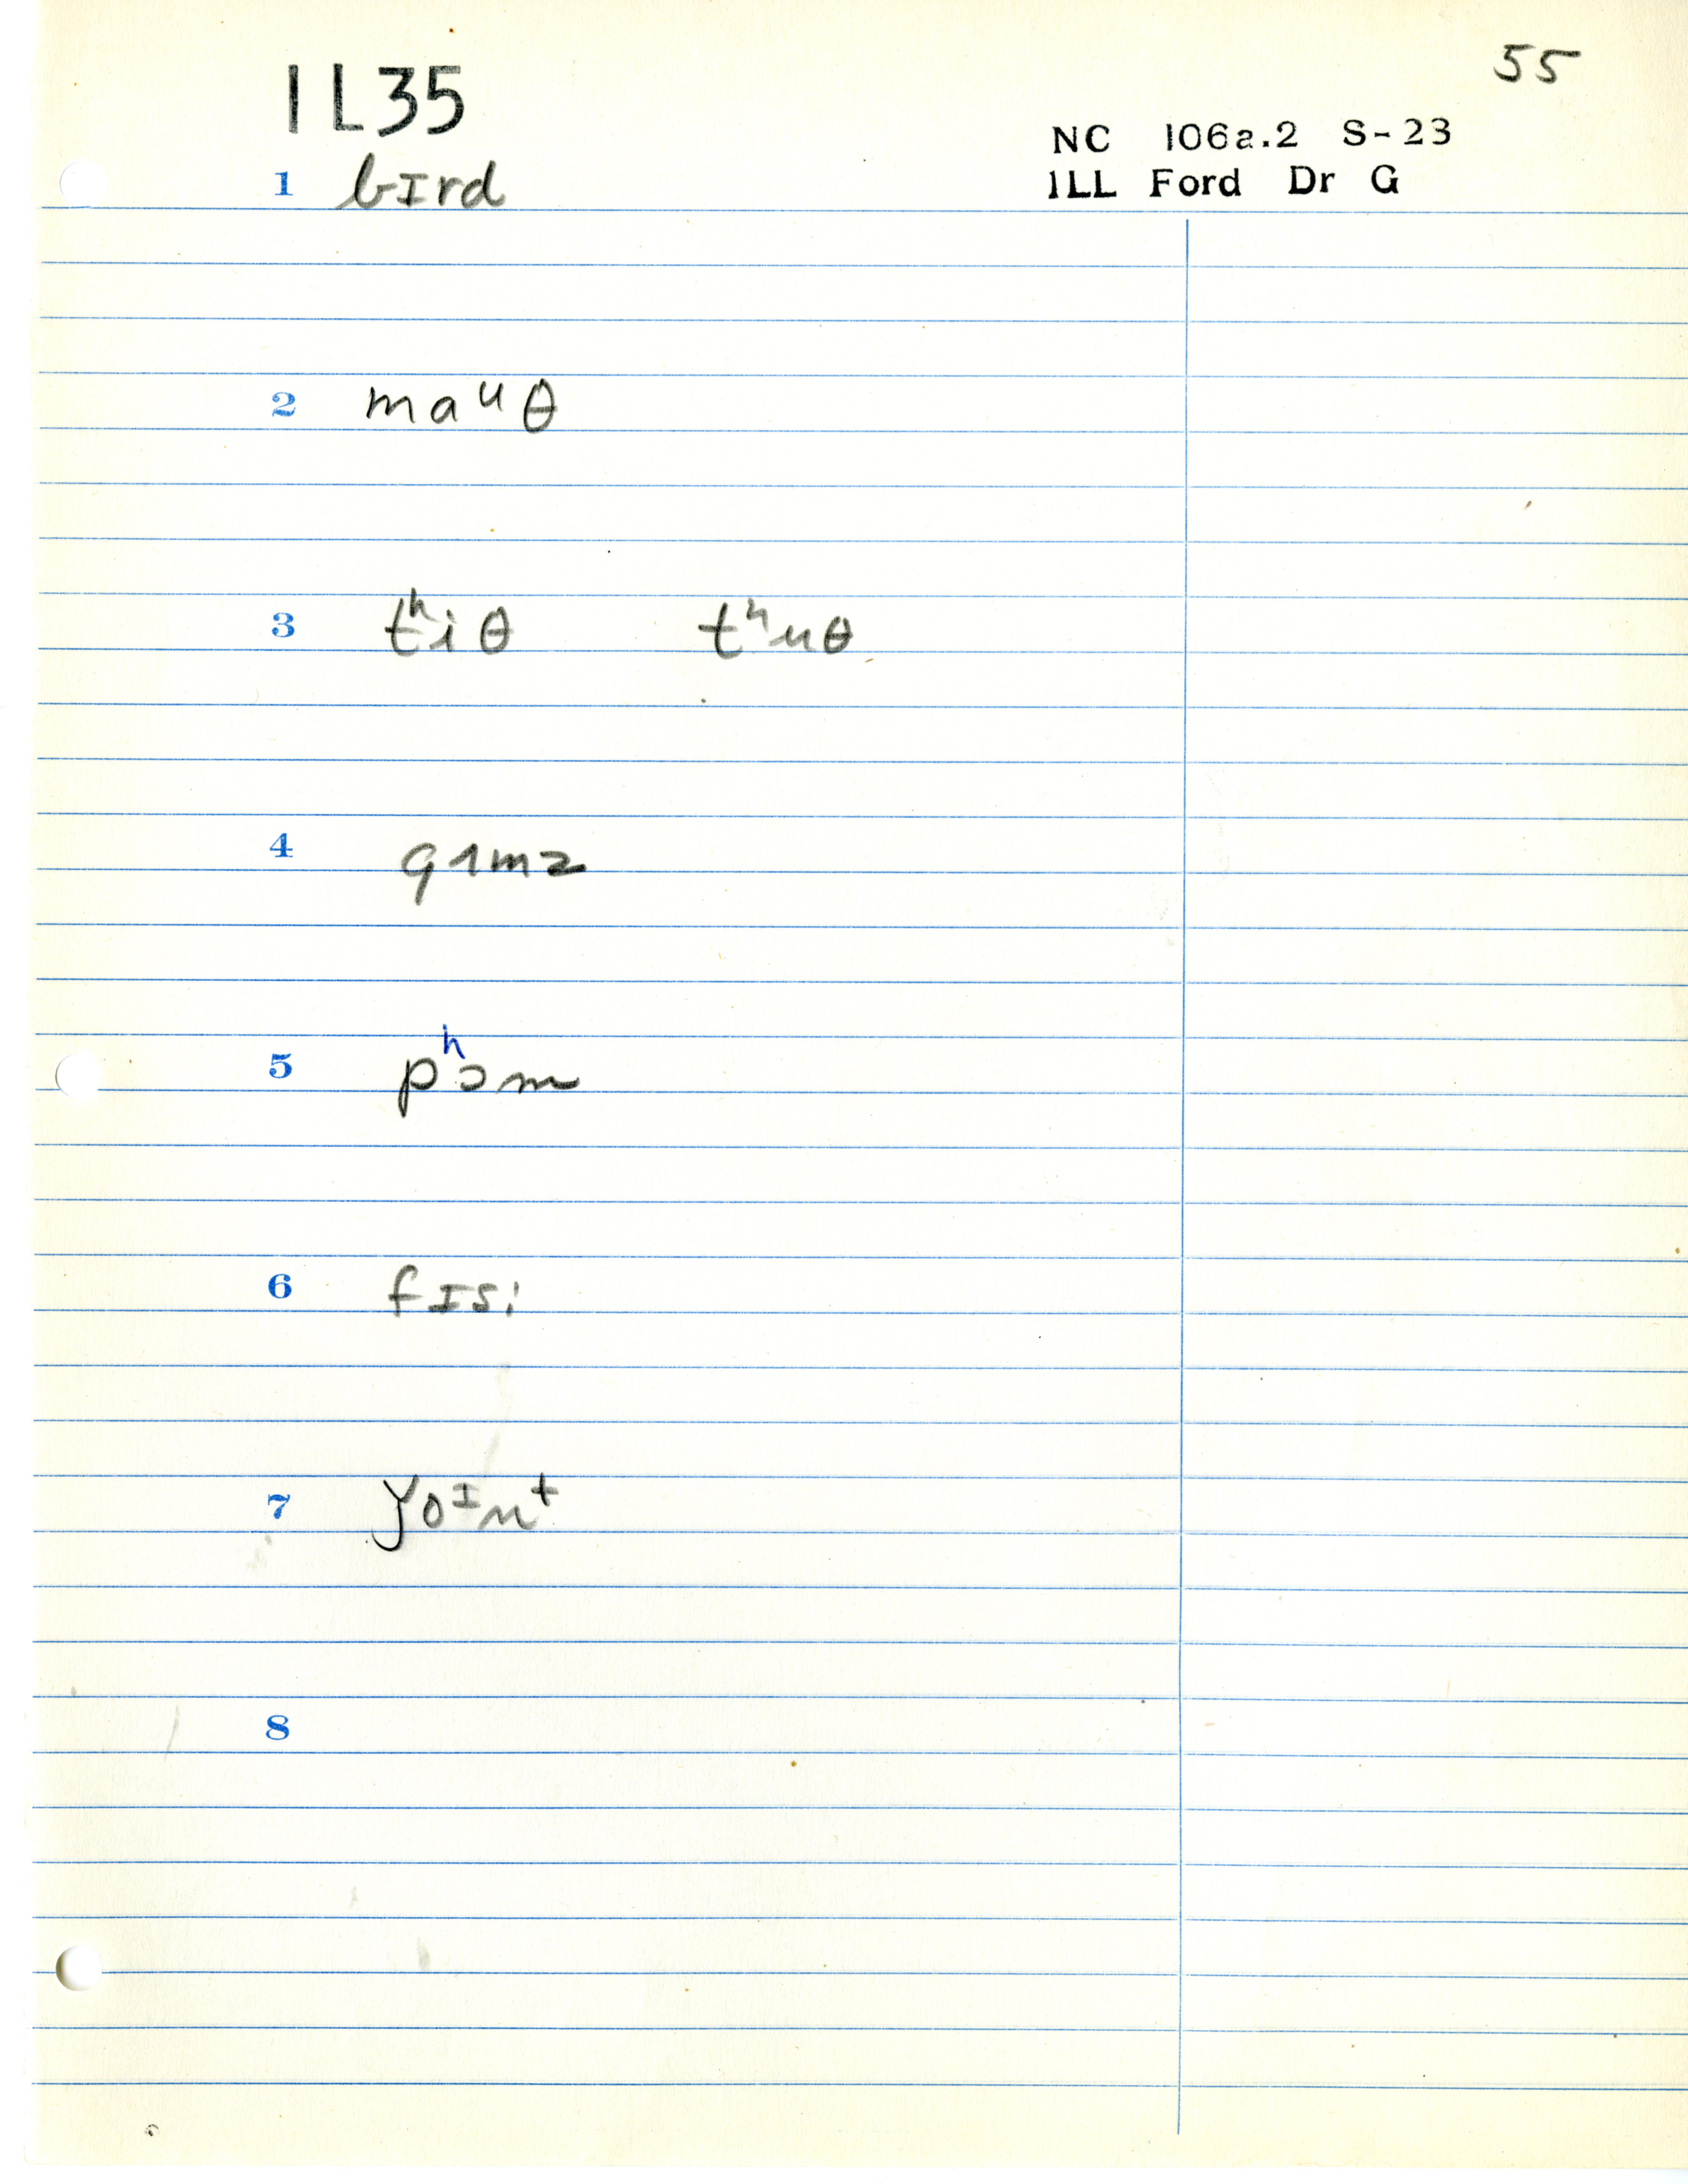 55
IL35
NC 106a.2 S-23
ILL Ford Dr G
1 bɪrd
2 maᵘθ
3 tʰiθ tʰuθ
4 gʌmz
5 pʰɔm
6 fɪsi
7 ǰoᶦnt
8